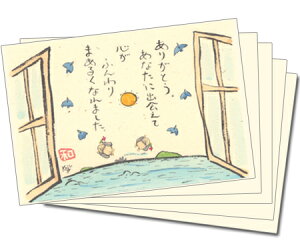 ありがとう。
あなたに出会えて
心が
ふんわり
まあるくなれました。
和